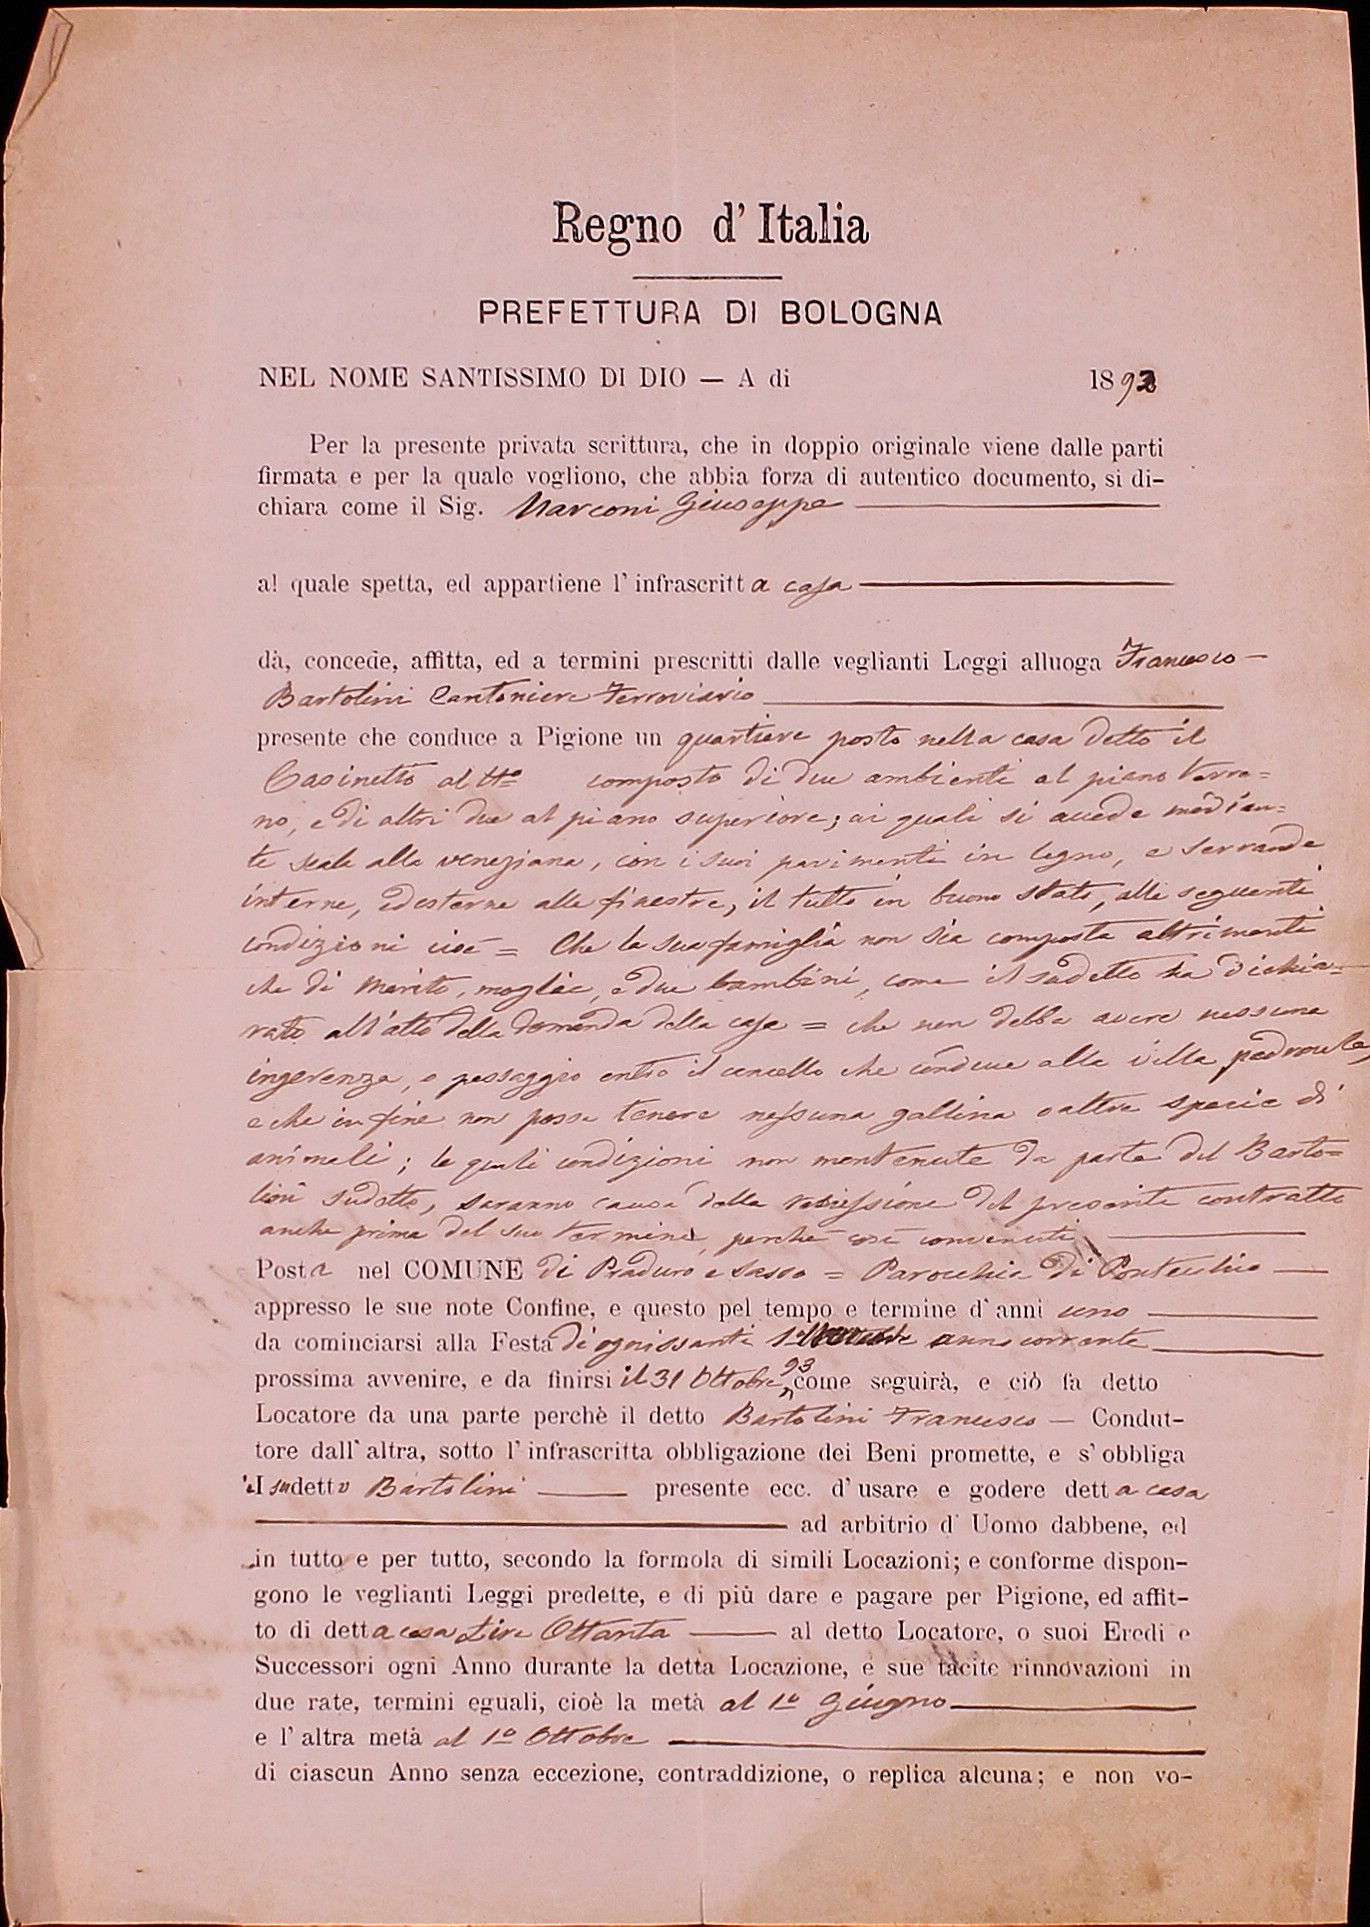 Regno d' Italia
PREFETTURA DI BOLOGNA
NEL NOME SANTISSIMO DI DIO — A di 1892
Per la presente privata scrittura, che in doppio originale viene dalle parti
firmata e per la quale vogliono, che abbia forza di autentico documento, si di-
chiara come il Sig. Marconi Giuseppe
al quale spetta, ed appartiene l' infrascritta casa
dà, concede, affitta, ed a termini prescritti dalle veglianti Leggi alluoga Francesco
Bartolini Cantoniere Ferroviario
presente che conduce a Pigione un quartiere posto nella casa detto il
Casinetto al N° composto di due ambienti al piano terre=
no, e di altri due al piano superiore; ai quali si accede median=
te scale alla veneziana, con i suoi pavimenti in legno, e serrande
interne, ed esterne alle finestre, il tutto in buono stato, alle seguenti
condizioni cioè = Che la sua famiglia non sia composta altrimenti
che di marito, moglie, e due bambini, come il sudetto ha dichia=
rato all'atto della domanda della casa = che non debba avere nessuna
ingerenza, o passaggio entro il cancello che conduce alla villa padronale,
e che in fine non possa tenere nessuna gallina o altra specie di
animali; le quali condizioni non mantenute da parte del Barto=
lini sudetto, saranno causa della rescissione del presente contratto
anche prima del suo termine, perché così convenuti
Posta nel COMUNE di Praduro e Sasso = Parocchia di Pontecchio
appresso le sue note Confine, e questo pel tempo e termine d' anni uno
da cominciarsi alla Festa di ognissanti 1° anno corrente
prossima avvenire, e da finirsi il 31 Ottobre 93 come seguirà, e ciò fa detto
Locatore da una parte perchè il detto Bartolini Francesco — Condut-
tore dall' altra, sotto l' infrascritta obbligazione dei Beni promette, e s' obbliga
il sudetto Bartolini presente ecc. d' usare e godere detta casa
ad arbitrio d' Uomo dabbene, ed
in tutto e per tutto, secondo la formola di simili Locazioni; e conforme dispon-
gono le veglianti Leggi predette, e di più dare e pagare per Pigione, ed affit-
to di detta casa Lire Ottanta al detto Locatore, o suoi Eredi e
Successori ogni Anno durante la detta Locazione, e sue tacite rinnovazioni in
due rate, termini eguali, cioè la metà al 1° Giugno
e l' altra metà al 1° Ottobre
di ciascun Anno senza eccezione, contraddizione, o replica alcuna; e non vo-